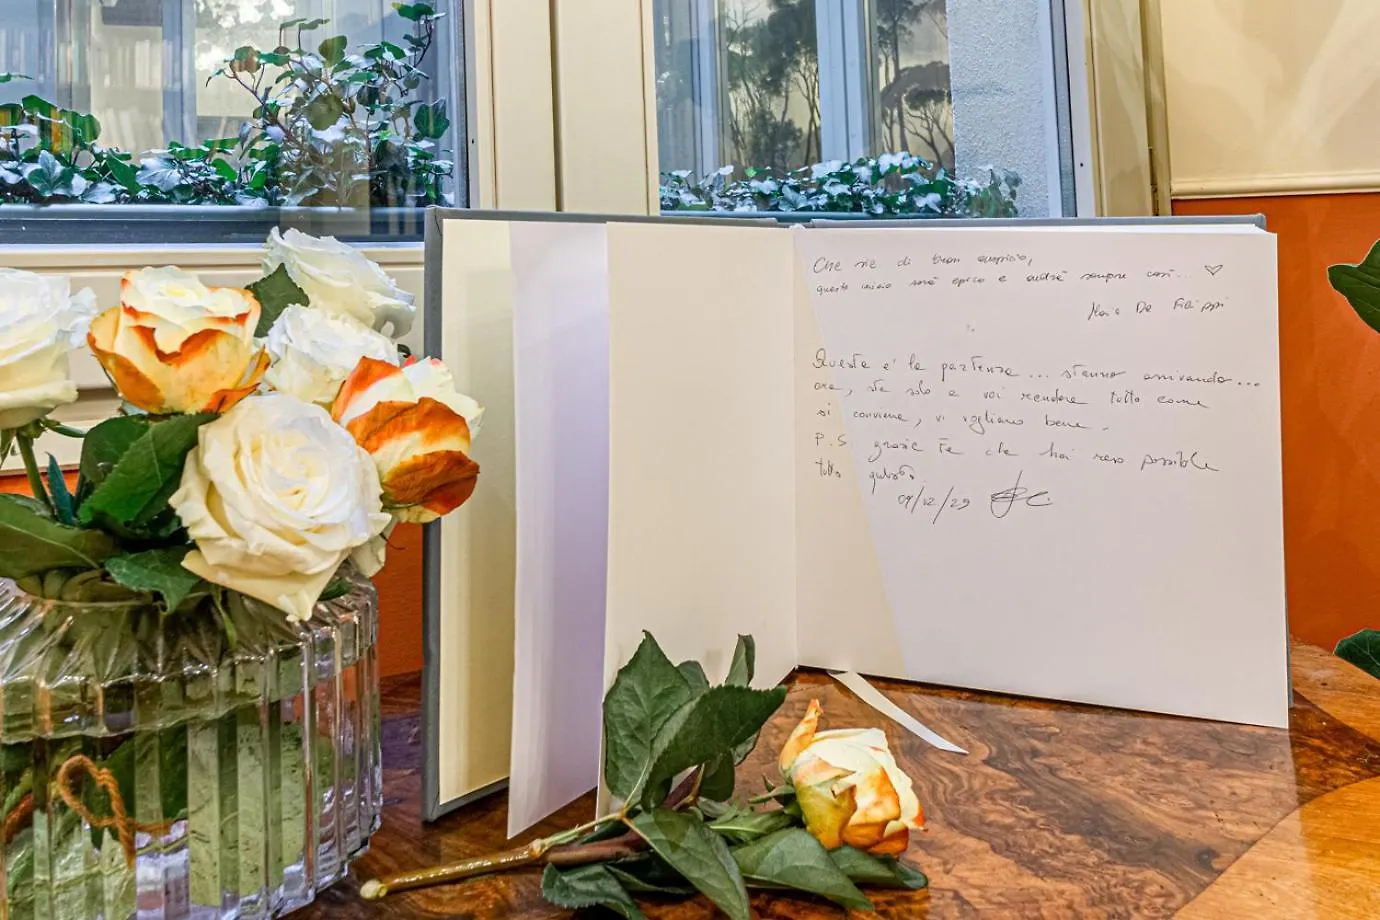 Che sia di buon auspicio,
questo inizio sarà epico e andrà sempre così... ♡
Maria De Filippi
Questa e' la partenza ... stanno arrivando ...
ora, sta solo a voi rendere tutto come
si conviene, vi vogliamo bene.
P.S. grazie Fe che hai reso possibile
tutto questo.
/12/23